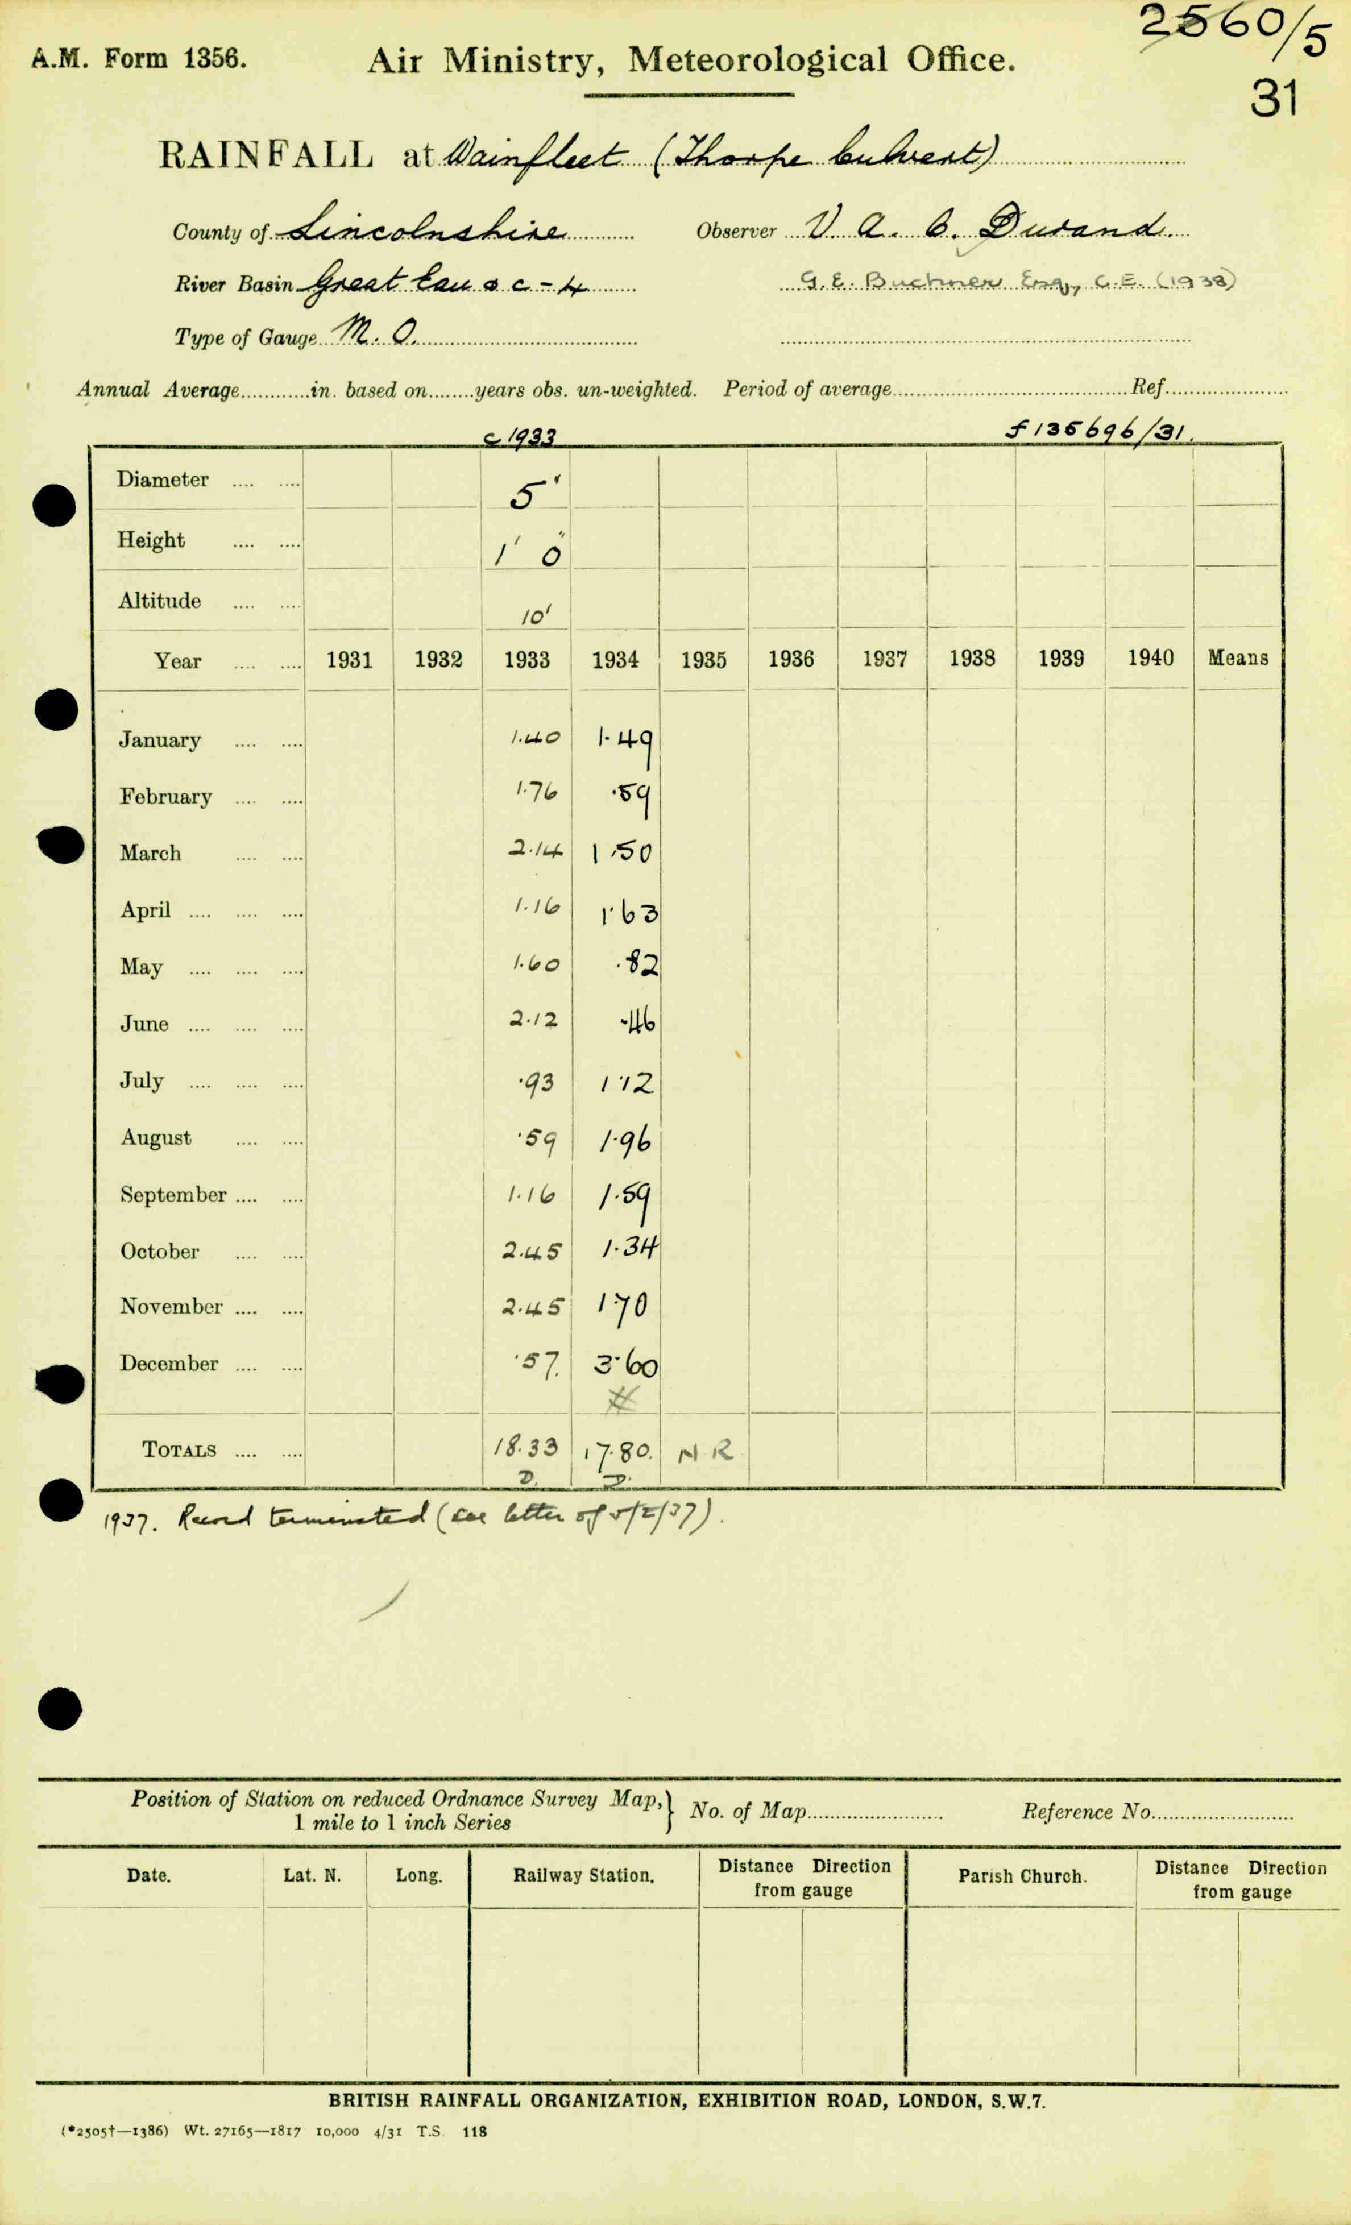 2560/5
A.M. Form 1356. Air Ministry, Meteorological Office.
31
RAINFALL at Wainfleet (Thorpe Culvert)
County of Lincolnshire Observer V. A. C. Durand
River Basin Great Eau & c - 4 G. E. Buchner Esq, C.E. (1938)
Type of Gauge M. O.
Annual Average............in. based on........years obs. un-weighted. Period of average.................... Ref....................
c 1933 f 135696/31.
Diameter .... .... 5"
Height .... .... 1' 0"
Altitude .... .... 10'
Year .... .... 1931 1932 1933 1934 1935 1936 1937 1938 1939 1940 Means
January .... .... 1.40 1.49
February .... .... 1.76 .59
March .... .... 2.14 1.50
April .... .... .... 1.16 1.63
May .... .... .... 1.60 .82
June .... .... .... 2.12 .46
July .... .... .... .93 1.12
August .... .... .59 1.96
September .... .... 1.16 1.59
October .... .... 2.45 1.34
November .... .... 2.45 1.70
December .... .... .57. 3.60
#
TOTALS .... .... 18.33 17.80. N R
D. D.
1937. Record terminated (see letter of 5/2/37).
Position of Station on reduced Ordnance Survey Map, } No. of Map.................... Reference No....................
1 mile to 1 inch Series
Date. Lat. N. Long. Railway Station. Distance Direction from gauge Parish Church. Distance Direction from gauge
BRITISH RAINFALL ORGANIZATION, EXHIBITION ROAD, LONDON, S.W.7.
(*2505†—1386) Wt. 27165—1817 10,000 4/31 T.S. 118